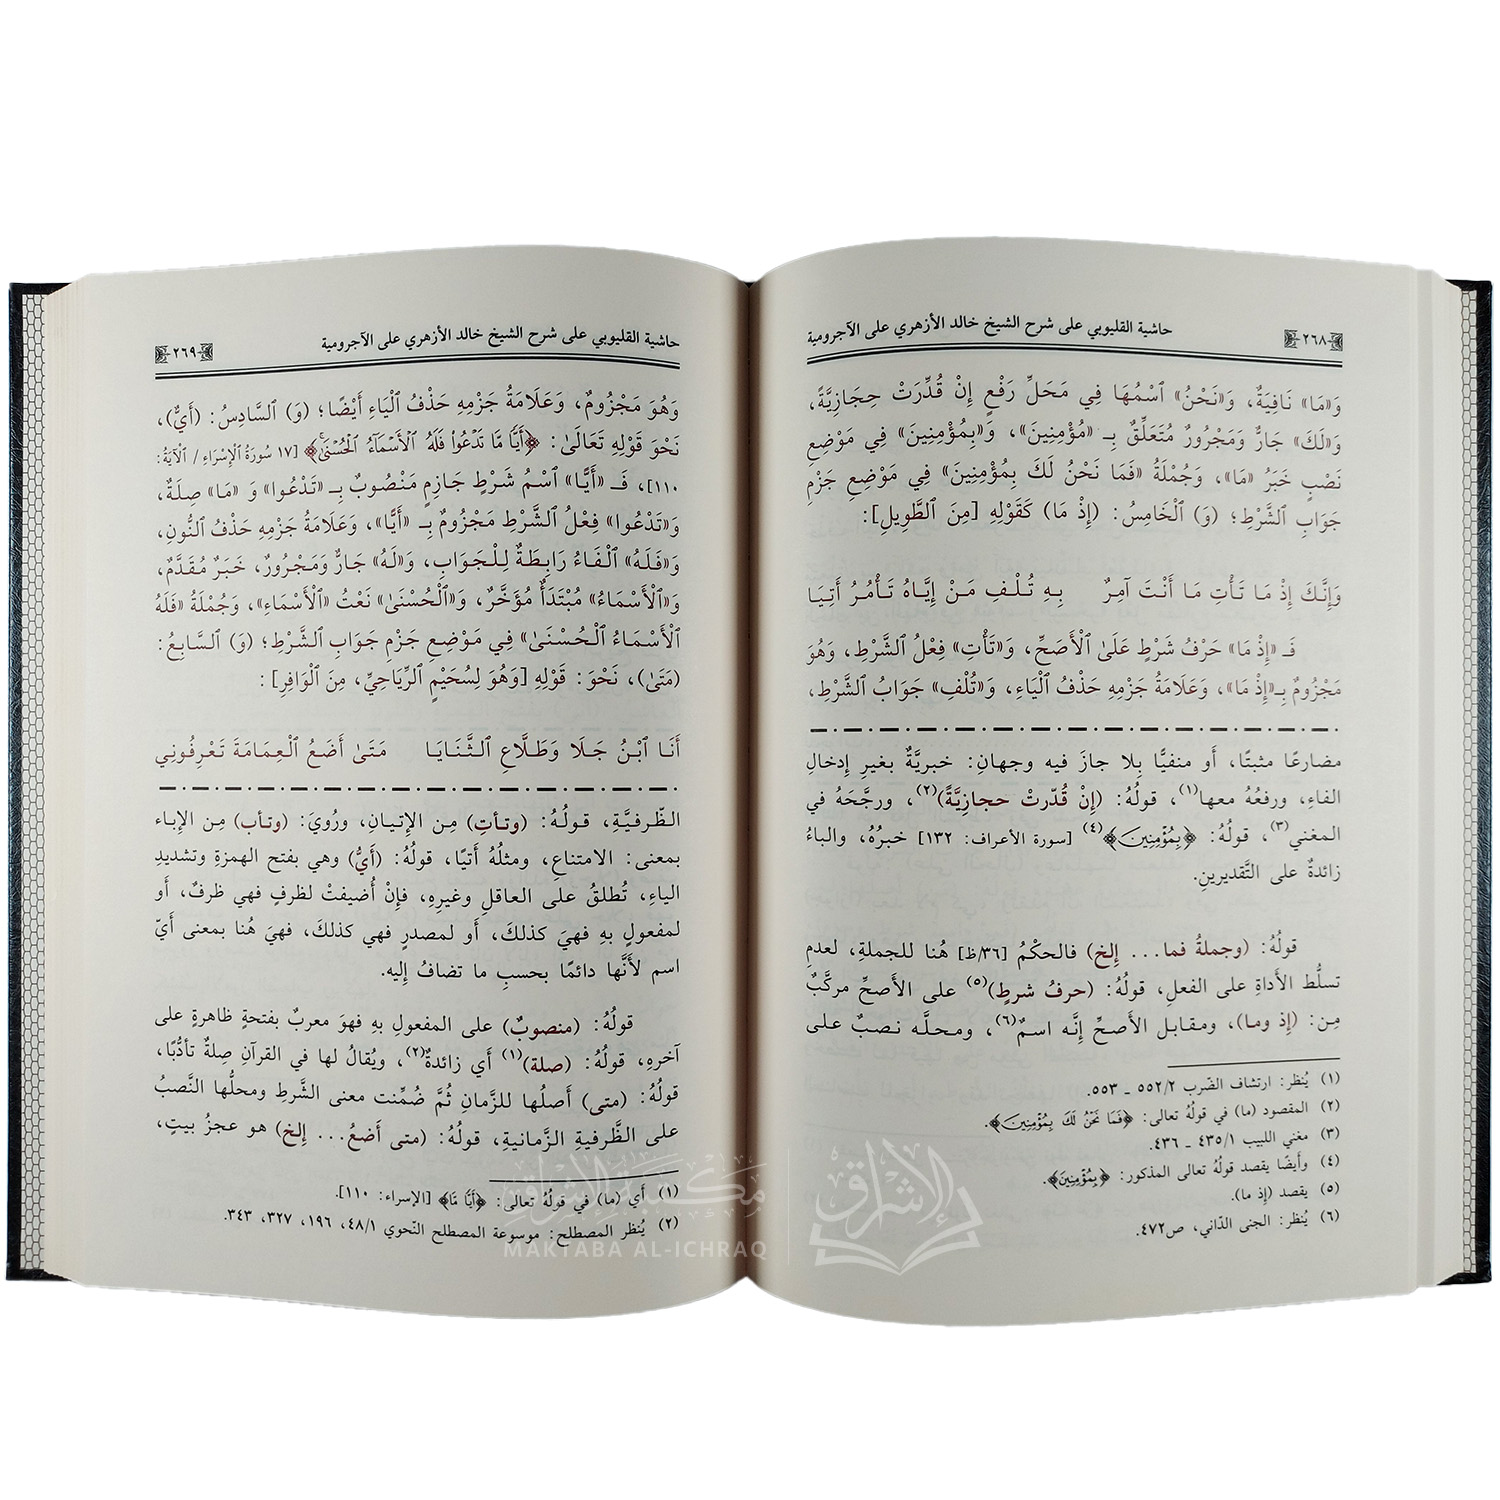 ٢٦٨
حاشية القليوبي على شرح الشيخ خالد الأزهري على الآجرومية
وَ«مَا» نَافِيَةٌ، وَ«نَحْنُ» ٱسْمُهَا فِي مَحَلِّ رَفْعٍ إِنْ قُدِّرَتْ حِجَازِيَّةً،
وَ«لَكَ» جَارٌّ وَمَجْرُورٌ مُتَعَلِّقٌ بِـ «مُؤْمِنِينَ»، وَ«بِمُؤْمِنِينَ» فِي مَوْضِعِ
نَصْبٍ خَبَرُ «مَا»، وَجُمْلَةُ «فَمَا نَحْنُ لَكَ بِمُؤْمِنِينَ» فِي مَوْضِعِ جَزْمِ
جَوَابِ ٱلشَّرْطِ؛ (وَ) ٱلْخَامِسُ: (إِذْ مَا) كَقَوْلِهِ [مِنَ ٱلطَّوِيلِ]:
وَإِنَّكَ إِذْ مَا تَأْتِ مَا أَنْتَ آمِرٌ بِهِ تُلْفِ مَنْ إِيَّاهُ تَأْمُرُ آتِيَا
فَـ «إِذْ مَا» حَرْفُ شَرْطٍ عَلَىٰ ٱلْأَصَحِّ، وَ«تَأْتِ» فِعْلُ ٱلشَّرْطِ، وَهُوَ
مَجْزُومٌ بِـ«إِذْ مَا»، وَعَلَامَةُ جَزْمِهِ حَذْفُ ٱلْيَاءِ، وَ«تُلْفِ» جَوَابُ ٱلشَّرْطِ،
مضارعًا مثبتًا، أو منفيًّا بِلا جازَ فيه وجهانِ: خبريَّةٌ بغيرِ إدخالِ
الفاءِ، ورفعُهُ معها(١)، قولُهُ: (إِنْ قُدّرتْ حجازِيَّةً)(٢)، ورجَّحَهُ في
المغني(٣)، قولُهُ: ﴿بِمُؤْمِنِينَ﴾(٤) [سورة الأعراف: ١٣٢] خبرُهُ، والباءُ
زائدةٌ على التَّقديرينِ.
قولُهُ: (وجملةُ فما... إلخ) فالحكْمُ [٣٦/ظ] هُنا للجملةِ، لعدمِ
تسلُّط الأداةِ على الفعلِ، قولُهُ: (حرفُ شرطٍ)(٥) على الأصحِّ مركَّبٌ
مِن: (إذ وما)، ومقابل الأصحِّ إنَّه اسمٌ(٦)، ومحلَّه نصبٌ على
(١) يُنظر: ارتشاف الضّرب ٥٥٢/٢ ـ ٥٥٣.
(٢) المقصود (ما) في قولُهُ تعالى: ﴿فَمَا نَحْنُ لَكَ بِمُؤْمِنِينَ﴾.
(٣) مغني اللبيب ٤٣٥/١ ـ ٤٣٦.
(٤) وأيضًا يقصد قولُهُ تعالى المذكور: ﴿بِمُؤْمِنِينَ﴾.
(٥) يقصد (إذ ما).
(٦) يُنظر: الجنى الدّاني، ص٤٧٢.
حاشية القليوبي على شرح الشيخ خالد الأزهري على الآجرومية
٢٦٩
وَهُوَ مَجْزُومٌ، وَعَلَامَةُ جَزْمِهِ حَذْفُ ٱلْيَاءِ أَيْضًا؛ (وَ) ٱلسَّادِسُ: (أَيٌّ)،
نَحْوَ قَوْلِهِ تَعَالَىٰ: ﴿أَيًّا مَّا تَدْعُوا۟ فَلَهُ ٱلْأَسْمَآءُ ٱلْحُسْنَىٰ﴾ [١٧ سُورَةُ ٱلْإِسْرَاءِ / ٱلْآيَةُ:
١١٠]، فَـ «أَيًّا» ٱسْمُ شَرْطٍ جَازِمٍ مَنْصُوبٌ بِـ «تَدْعُوا» وَ «مَا» صِلَةٌ،
وَ«تَدْعُوا» فِعْلُ ٱلشَّرْطِ مَجْزُومٌ بِـ «أَيًّا»، وَعَلَامَةُ جَزْمِهِ حَذْفُ ٱلنُّونِ،
وَ«فَلَهُ» ٱلْفَاءُ رَابِطَةٌ لِلْجَوَابِ، وَ«لَهُ» جَارٌّ وَمَجْرُورٌ، خَبَرٌ مُقَدَّمٌ،
وَ«ٱلْأَسْمَاءُ» مُبْتَدَأٌ مُؤَخَّرٌ، وَ«ٱلْحُسْنَىٰ» نَعْتُ «ٱلْأَسْمَاءِ»، وَجُمْلَةُ «فَلَهُ
ٱلْأَسْمَاءُ ٱلْحُسْنَىٰ» فِي مَوْضِعِ جَزْمِ جَوَابِ ٱلشَّرْطِ؛ (وَ) ٱلسَّابِعُ:
(مَتَىٰ)، نَحْوَ: قَوْلِهِ [وَهُوَ لِسُحَيْمٍ ٱلرِّيَاحِيِّ، مِنَ ٱلْوَافِرِ]:
أَنَا ٱبْنُ جَلَا وَطَلَّاعِ ٱلثَّنَايَا مَتَىٰ أَضَعُ ٱلْعِمَامَةَ تَعْرِفُونِي
الظّرفيَّةِ، قولُهُ: (وتأتِ) مِن الإتيانِ، ورُويَ: (وتأب) مِن الإباء
بمعنى: الامتناع، ومثلُهُ أتيًا، قولُهُ: (أَيٌّ) وهي بفتح الهمزةِ وتشديدِ
الياءِ، تُطلقُ على العاقلِ وغيرِهِ، فإنْ أُضيفتْ لظرفٍ فهي ظرفٌ، أو
لمفعولٍ بهِ فهيَ كذلكَ، أو لمصدرٍ فهي كذلكَ، فهيَ هُنا بمعنى أيّ
اسم لأنَّها دائمًا بحسبِ ما تضافُ إليه.
قولُهُ: (منصوبٌ) على المفعولِ بهِ فهوَ معربٌ بفتحةٍ ظاهرةٍ على
آخرهِ، قولُهُ: (صلة)(١) أي زائدةٌ(٢)، ويُقالُ لها في القرآنِ صِلةٌ تأدُّبًا،
قولُهُ: (متى) أصلُها للزَّمانِ ثمَّ ضُمِّنت معنى الشَّرطِ ومحلُّها النَّصبُ
على الظَّرفيةِ الزَّمانيةِ، قولُهُ: (متى أضعُ... إلخ) هو عجزُ بيتٍ،
(١) أي (ما) في قولُهُ تعالى: ﴿أَيًّا مَّا﴾ [الإسراء: ١١٠].
(٢) يُنظر المصطلح: موسوعة المصطلح النّحوي ٤٨/١، ١٩٦، ٣٢٧، ٣٤٣.
مكتبة الإشراق
MAKTABA AL-ICHRAQ
الإشراق